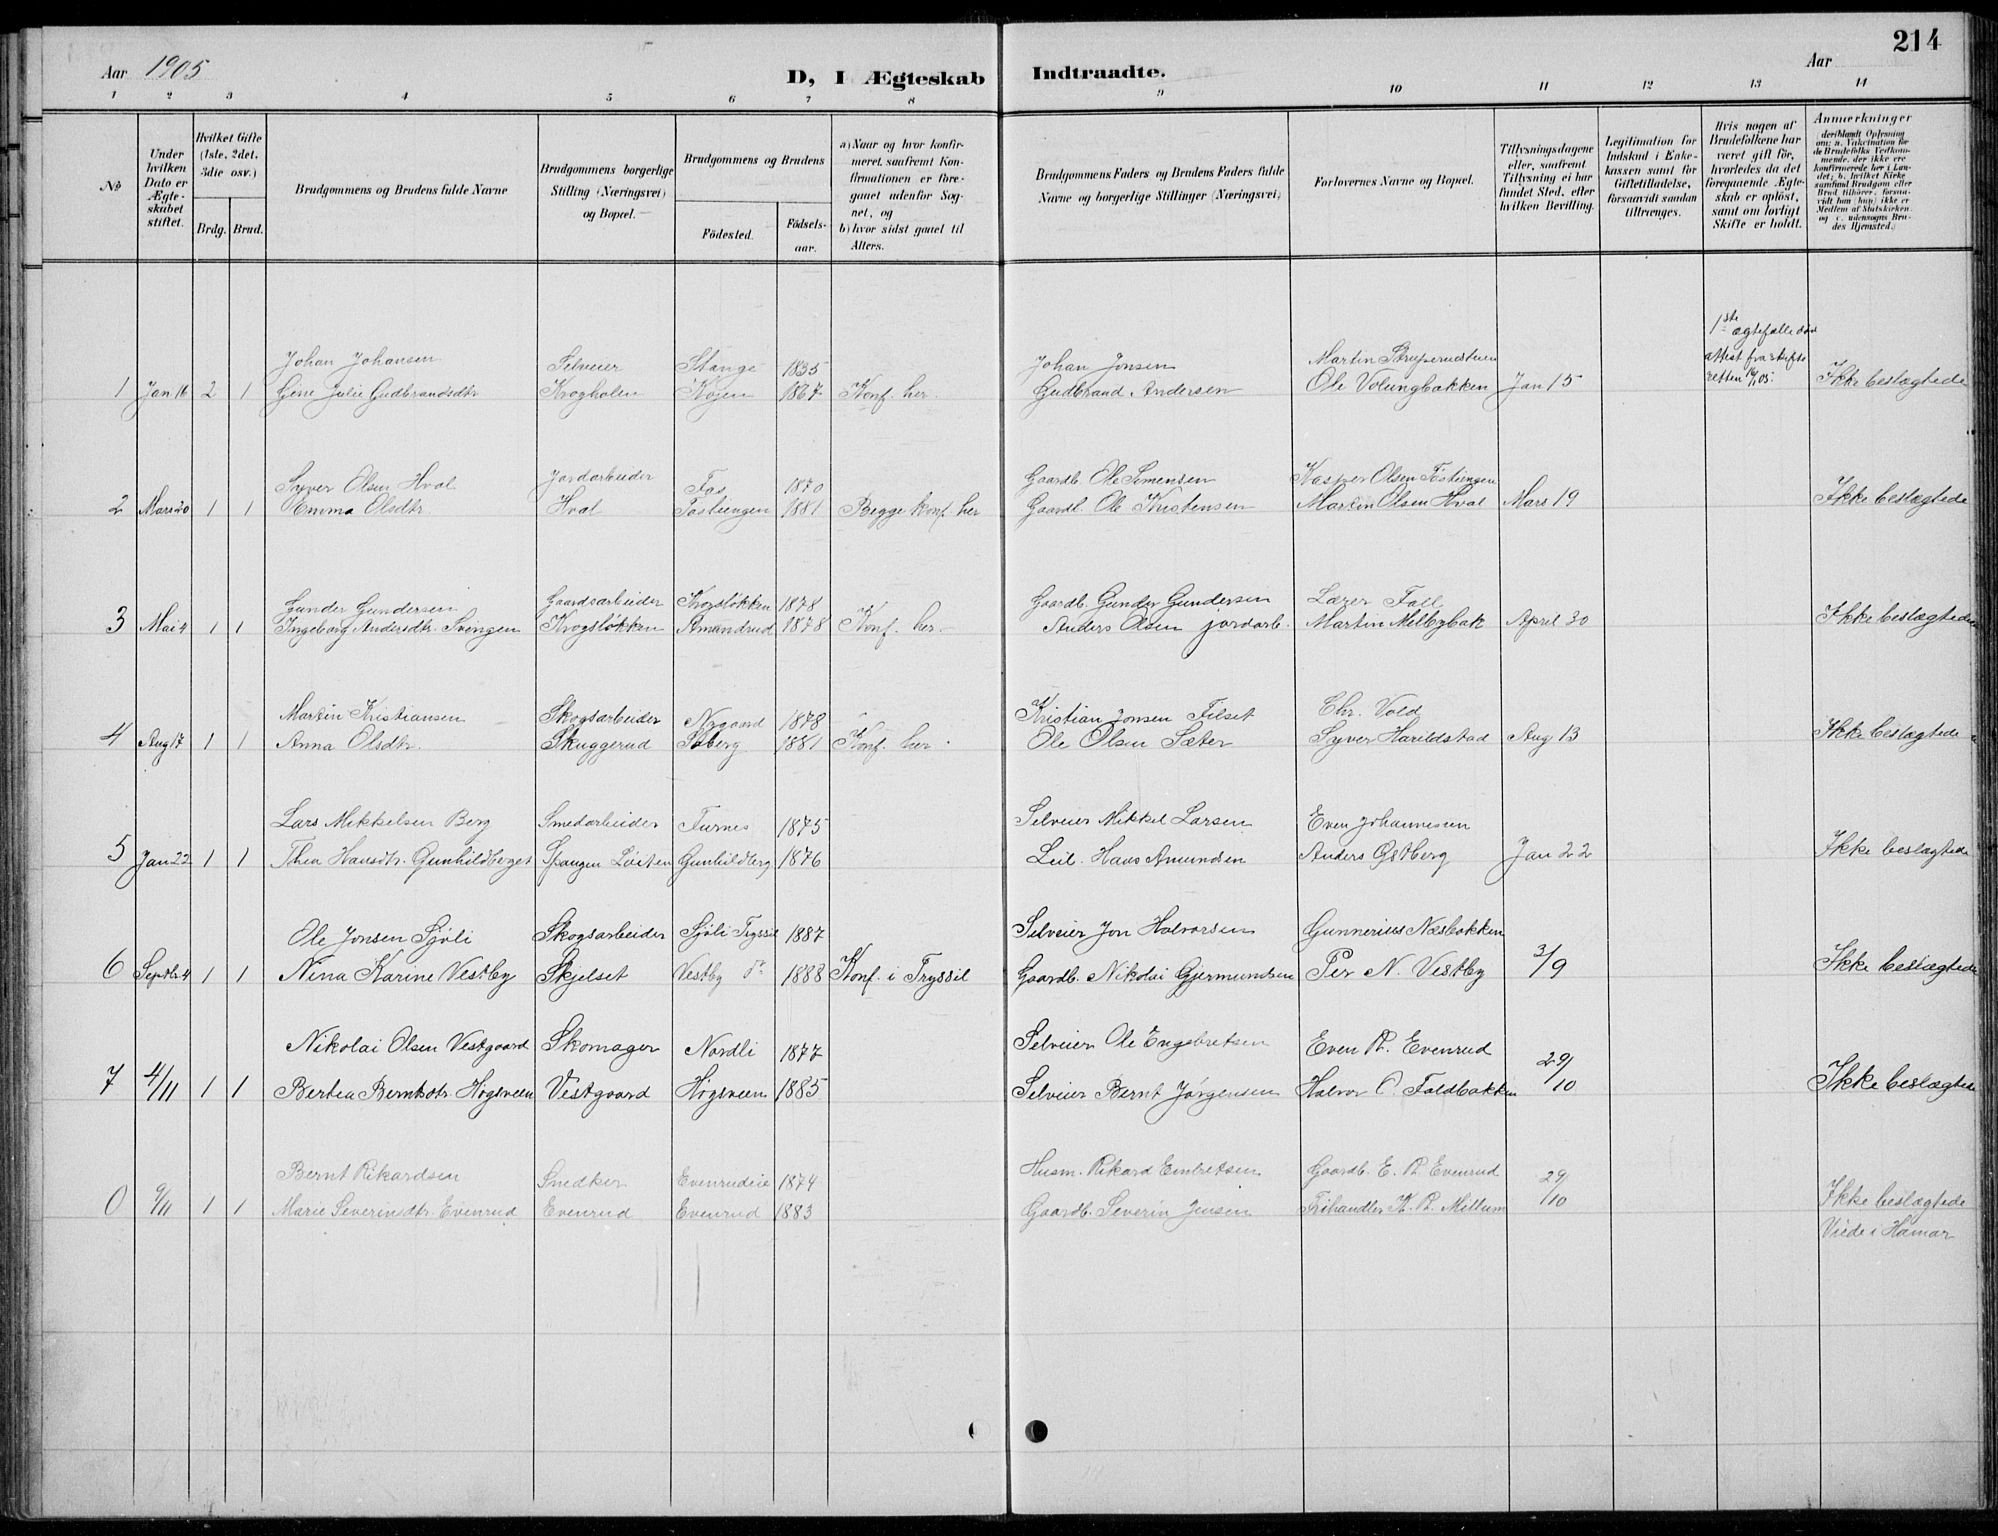 214
Aar 1905
D, I Ægteskab Indtraadte.
Aar
1 2 3 4 5 6 7 8 9 10 11 12 13 14
No
Under hvilken Dato er Ægteskabet stiftet.
Hvilket Gifte (1ste, 2det, 3die osv.)
Brdg. Brud.
Brudgommens og Brudens fulde Navne
Brudgommens borgerlige Stilling (Næringsvei) og Bopæl.
Brudgommens og Brudens
Födested. Födselsaar.
a) Naar og hvor konfirmeret, saafremt Konfirmationen er foregaaet udenfor Sognet, og
b) hvor sidst gaaet til Alters.
Brudgommens Faders og Brudens Faders fulde Navne og borgerlige Stillinger (Næringsvei)
Forlovernes Navne og Bopæl.
Tillysningsdagene eller, saafremt Tillysning ei har fundet Sted, efter hvilken Bevilling.
Legitimation for Indskud i Enkekassen samt for Giftetilladelse, forsaavidt saadan tiltrænges.
Hvis nogen af Brudefolkene har været gift för, hvorledes da det foregaaende Ægteskab er oplöst, samt om lovligt Skifte er holdt.
Anmærkninger
deriblandt Oplysning om: a. Vakcination for de Brudefolks Vedkommende, der ikke ere konfirmerede her i Landet; b. hvilket Kirkesamfund Brudgom eller Brud tilhörer, forsaavidt han (hun) ikke er Medlem af Statskirken, og c. udensogns Brudes Hjemsted.)
Johan Johansen Selveier Stange 1835 Johan Jonsen Martin 1ste ægtefælle død
1 Jan 16 2 1 Gine Julie Gudbrandsdtr Krogholen Kojen 1867 Konf. her. Gudbrand Andersen Ole Volungbakken Jan 15 attest fra skifteretten Ikke beslægtede
Syver Olsen Hval Jordarbeider Fas 1870 Gaardb. Ole Simensen Kasper Olsen Tostiengen
2 Mars 20 1 1 Emma Olsdtr Hval Tostiengen 1881 Begge konf. her Gaardb. Ole Kristensen Martin Olsen Hval Mars 19 Ikke beslægtede
Gunder Gundersen Gaardsarbeider Krogsløkken 1878 Gaardb. Gunder Gundersen
3 Mai 4 1 1 Ingeborg Andersdtr. Svingen Krogsløkken Amandrud 1878 Konf. her. Anders Olsen jordarb. Martin Melbybak April 30 Ikke beslægtede
Martin Kristiansen Skogsarbeider Nygaard 1878 Kristian Jonsen Filset Chr. Vold
4 Aug 17 1 1 Anna Olsdtr. Skuggerud Søberg 1881 Konf. her. Ole Olsen Sæter Syver Harildstad Aug 13 Ikke beslægtede
Lars Mikkelsen Berg Smedarbeider Furnes 1875 Selveier Mikkel Larsen Even Johannesen
5 Jan 22 1 1 Thea Hansdtr. Gunhildberget Spangen Løiten Gunhildberg 1876 Leil. Hans Amundsen Anders Østberg Jan 22 Ikke beslægtede
Ole Jonsen Sjøli Skogsarbeider Sjøli Tryssil 1887 Selveier Jon Halvorsen Gunnerius Næsbakken
6 Septbr 4 1 1 Nina Karine Vestby Skjelset Vestby do 1888 Konf. i Tryssil Gaardb. Nikolai Gjermundsen Per N. Vestby 3/9 Ikke beslægtede
Nikolai Olsen Vestgaard Skomager Nordli 1877 Selveier Ole Engebretsen Even R. Evenrud
7 4/11 1 1 Bertea Berntsdtr. Høgsveen Vestgaard Høgsveen 1885 Selveier Bernt Jørgensen Halvor O. Faldbakken 29/10 Ikke beslægtede
Bernt Rikardsen Snedker Evenrudeie 1874 Husm. Rikard Embretsen Gaardb. E. R. Evenrud
0 9/11 1 1 Marie Severinsdtr. Evenrud Evenrud Evenrud 1883 Gaardb. Severin Jensen Frihandler K. R. Millum 29/10 Ikke beslægtede
Viede i Hamar